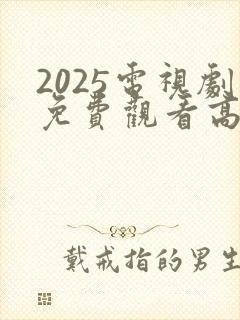 2025電視劇
免費觀看高
戴戒指的男生